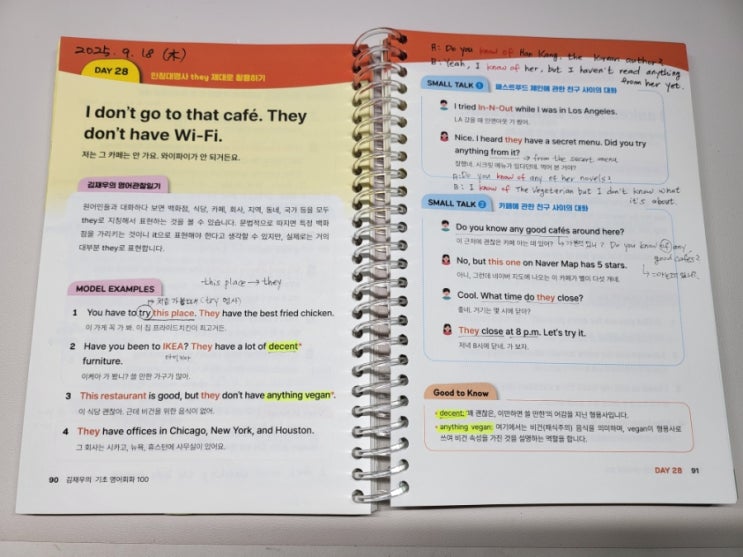 2025. 9. 18 (木)
DAY 28
인칭대명사 they 제대로 활용하기
I don't go to that café. They
don't have Wi-Fi.
저는 그 카페는 안 가요. 와이파이가 안 되거든요.
김재우의 영어관찰일기
원어민들과 대화하다 보면 백화점, 식당, 카페, 회사, 지역, 동네, 국가 등을 모두
they로 지칭해서 표현하는 것을 볼 수 있습니다. 문법적으로 따지면 특정 백화
점을 가리키는 것이니 it으로 표현해야 한다고 생각할 수 있지만, 실제로는 거의
대부분 they로 표현합니다.
this place → they
MODEL EXAMPLES
→ 처음 가볼때 (try 명사)
1 You have to try this place. They have the best fried chicken.
이 가게 꼭 가 봐. 이 집 프라이드치킨이 최고거든.
2 Have you been to IKEA? They have a lot of decent*
furniture.
이케아 가 봤니? 쓸 만한 가구가 많아.
3 This restaurant is good, but they don't have anything vegan*.
이 식당 괜찮아. 근데 비건을 위한 음식이 없어.
4 They have offices in Chicago, New York, and Houston.
그 회사는 시카고, 뉴욕, 휴스턴에 사무실이 있어요.
90 김재우의 기초 영어회화 100
A: Do you know of Han Kang, the Korean author?
B: Yeah, I know of her, but I haven't read anything
from her yet.
SMALL TALK 1 패스트푸드 체인에 관한 친구 사이의 대화
I tried In-N-Out while I was in Los Angeles.
LA 갔을 때 인앤아웃 가 봤어.
Nice. I heard they have a secret menu. Did you try
anything from it?
→ from the secret menu
잘했네. 시크릿 메뉴가 있다던데, 먹어 본 거야?
A: Do you know of any of her novels?
B: I know of The Vegetarian but I don't know what
it's about.
SMALL TALK 2 카페에 관한 친구 사이의 대화
Do you know any good cafés around here?
이 근처에 괜찮은 카페 아는 데 있어?
Do you know of any
good cafes?
No, but this one on Naver Map has 5 stars.
아니, 그런데 네이버 지도에 나오는 이 카페가 별이 다섯 개네.
Cool. What time do they close?
좋네. 거기는 몇 시에 닫아?
They close at 8 p.m. Let's try it.
저녁 8시에 닫네. 가 보자.
Good to Know
* decent: '꽤 괜찮은, 이만하면 쓸 만한'의 어감을 지닌 형용사입니다.
* anything vegan: 여기에서는 비건(채식주의) 음식을 의미하며, vegan이 형용사로
쓰여 비건 속성을 가진 것을 설명하는 역할을 합니다.
DAY 28 91